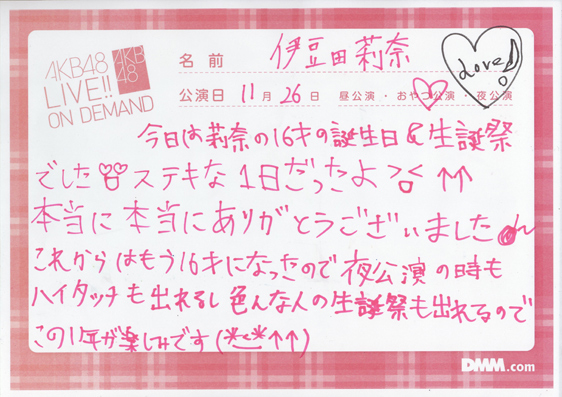 AKB48
LIVE!!
ON DEMAND
AKB
48
名前 伊豆田莉奈
Love♪
公演日 11月26日 昼公演・おやつ公演・夜公演
今日は莉奈の16才の誕生日&生誕祭
でした ステキな1日だったよ ↑↑
本当に本当にありがとうございました
これからはもう16才になったので夜公演の時も
ハイタッチも出れるし色んな人の生誕祭も出れるので
この1年が楽しみです(*^^*↑↑)
DMM.com